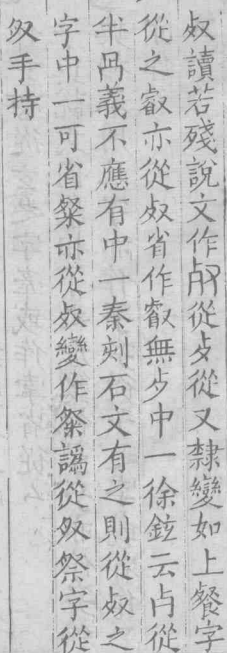 㕡讀若殘說文作𣦼從歺從又隸變如上餐字
從之叡亦從㕡省作叡無歺中一徐鉉云卢從
半冎義不應有中一秦刻石文有之則從㕡之
字中一可省粲亦從㕡變作粲譌從㕚祭字從
㕚手持